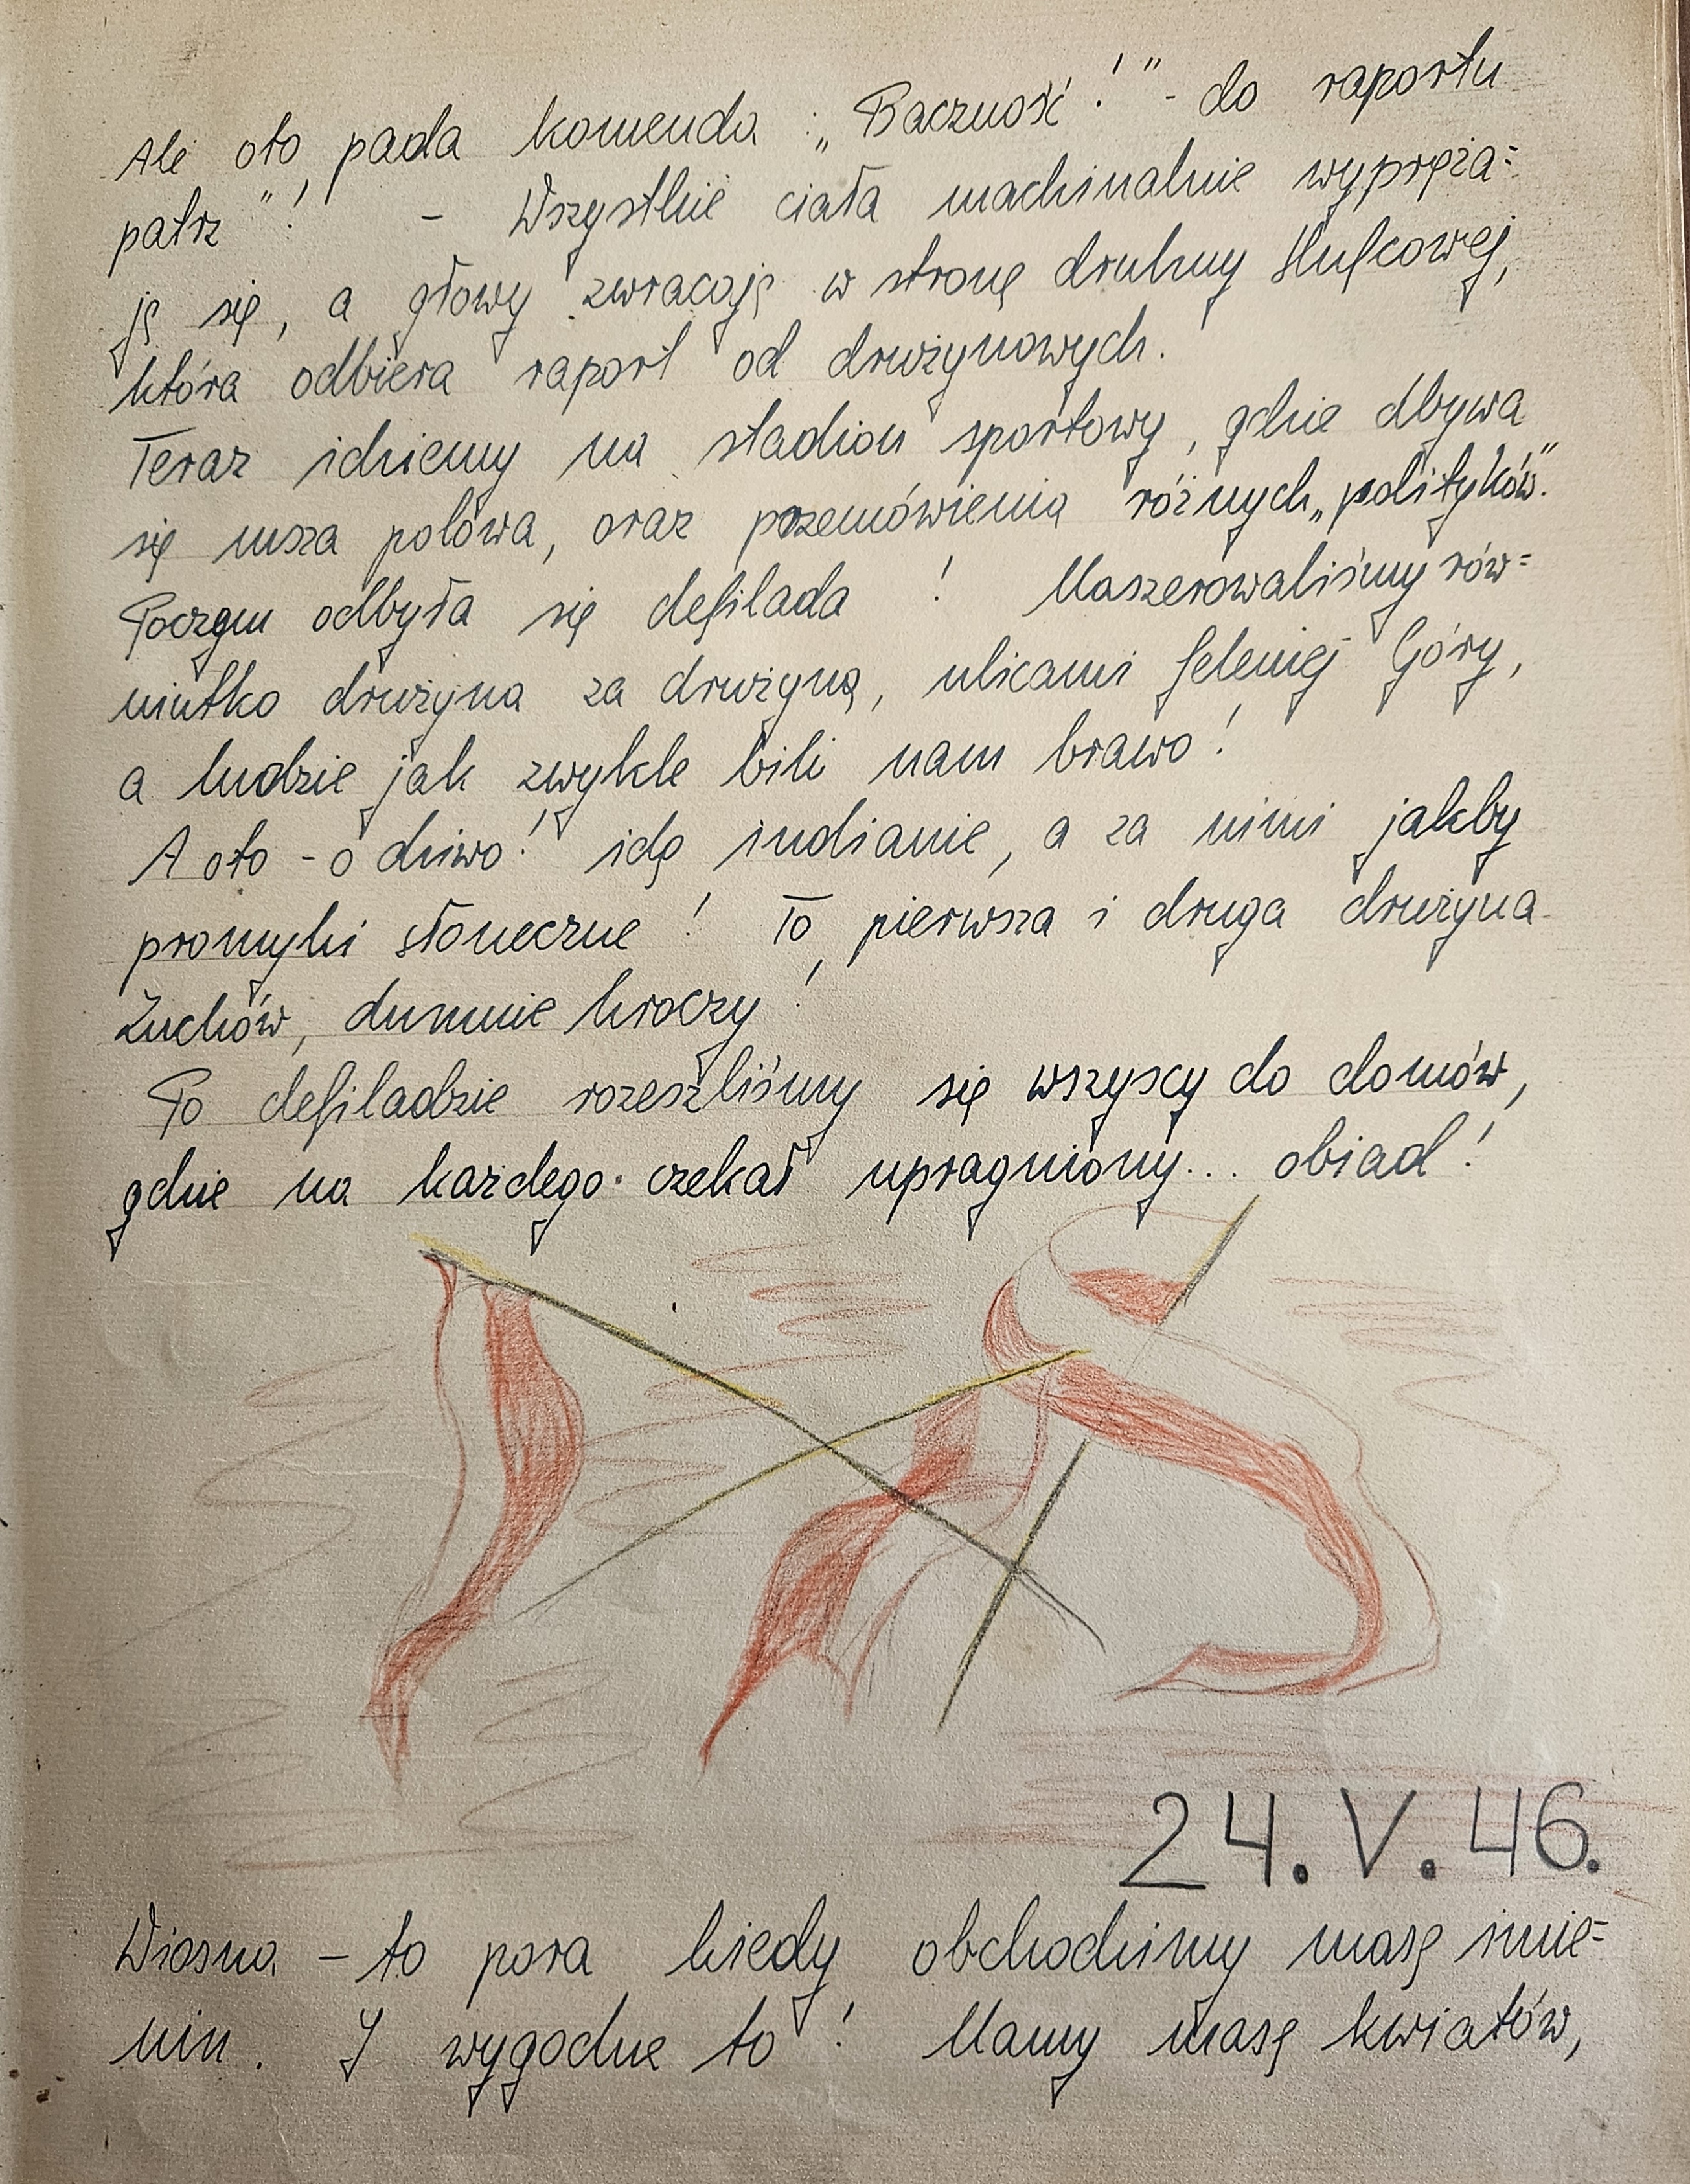 Ale oto pada komenda : „Baczność!" - do raportu
patrz"! - Wszystkie ciała machinalnie wypręża=
ją się, a głowy zwracają w stronę druhny Hufcowej,
która odbiera raport od drużynowych.
Teraz idziemy na stadion sportowy, gdzie dbywa
się msza polowa, oraz przemówienia różnych „polityków".
Poczem odbyła się defilada ! Maszerowaliśmy rów=
niutko drużyna za drużyną, ulicami Jeleniej Góry,
a ludzie jak zwykle bili nam brawo!
A oto - o dziwo! idą indianie, a za nimi jakby
promyki słoneczne! To, pierwsza i druga drużyna
Zuchów, dumnie kroczy!
Po defiladzie rozeszliśmy się wszyscy do domów,
gdzie na każdego czekał upragniony... obiad!
24.V.46.
Wiosna - to pora kiedy obchodzimy masę imie=
nin. I wygodne to! Mamy masę kwiatów,